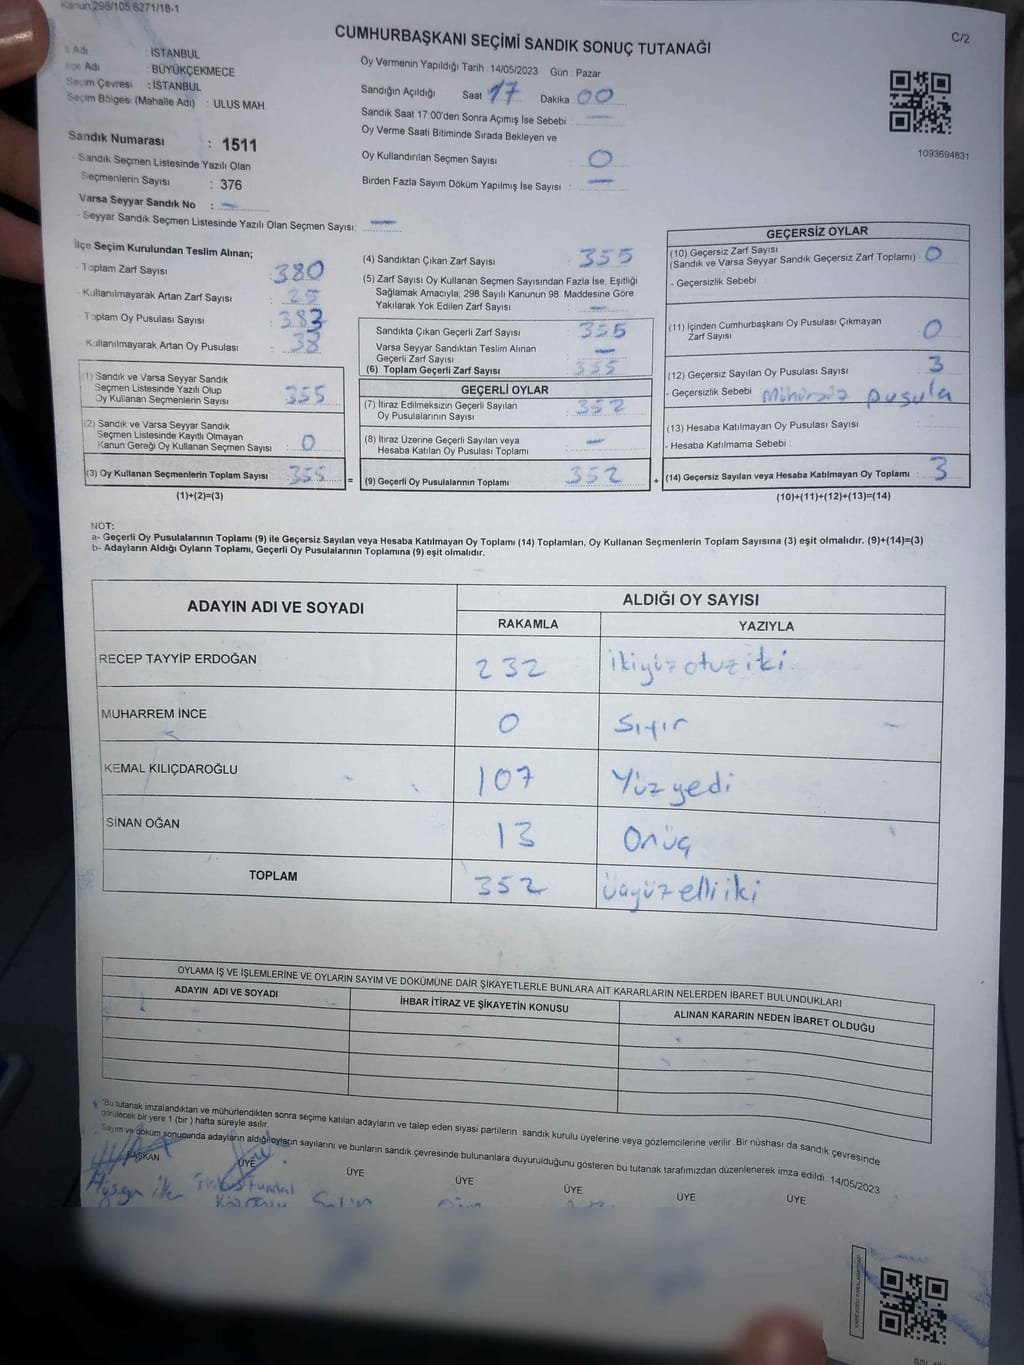 Kanun;298/105;6271/18-1
C/2
CUMHURBAŞKANI SEÇİMİ SANDIK SONUÇ TUTANAĞI
İl Adı : İSTANBUL
İlçe Adı : BÜYÜKÇEKMECE
Seçim Çevresi : İSTANBUL
Seçim Bölgesi (Mahalle Adı) : ULUS MAH.
Sandık Numarası : 1511
- Sandık Seçmen Listesinde Yazılı Olan
Seçmenlerin Sayısı : 376
Varsa Seyyar Sandık No : —
- Seyyar Sandık Seçmen Listesinde Yazılı Olan Seçmen Sayısı: —
Oy Vermenin Yapıldığı Tarih : 14/05/2023 Gün : Pazar
Sandığın Açıldığı Saat 17 Dakika 00
Sandık Saat 17:00'den Sonra Açılmış İse Sebebi : —
Oy Verme Saati Bitiminde Sırada Bekleyen ve
Oy Kullandırılan Seçmen Sayısı : 0
Birden Fazla Sayım Döküm Yapılmış İse Sayısı : —
1093694831
İlçe Seçim Kurulundan Teslim Alınan;
- Toplam Zarf Sayısı : 380
- Kullanılmayarak Artan Zarf Sayısı : 25
- Toplam Oy Pusulası Sayısı : 383
- Kullanılmayarak Artan Oy Pusulası : 38
(1) Sandık ve Varsa Seyyar Sandık
Seçmen Listesinde Yazılı Olup
Oy Kullanan Seçmenlerin Sayısı : 355
(2) Sandık ve Varsa Seyyar Sandık
Seçmen Listesinde Kayıtlı Olmayan
Kanun Gereği Oy Kullanan Seçmen Sayısı : 0
(3) Oy Kullanan Seçmenlerin Toplam Sayısı : 355
(1)+(2)=(3)
(4) Sandıktan Çıkan Zarf Sayısı : 355
(5) Zarf Sayısı Oy Kullanan Seçmen Sayısından Fazla İse, Eşitliği
Sağlamak Amacıyla; 298 Sayılı Kanunun 98. Maddesine Göre
Yakılarak Yok Edilen Zarf Sayısı : —
Sandıkta Çıkan Geçerli Zarf Sayısı : 355
Varsa Seyyar Sandıktan Teslim Alınan
Geçerli Zarf Sayısı : —
(6) Toplam Geçerli Zarf Sayısı : 355
GEÇERLİ OYLAR
(7) İtiraz Edilmeksizin Geçerli Sayılan
Oy Pusulalarının Sayısı : 352
(8) İtiraz Üzerine Geçerli Sayılan veya
Hesaba Katılan Oy Pusulası Toplamı : —
= (9) Geçerli Oy Pusulalarının Toplamı : 352 +
GEÇERSİZ OYLAR
(10) Geçersiz Zarf Sayısı
(Sandık ve Varsa Seyyar Sandık Geçersiz Zarf Toplamı) : 0
- Geçersizlik Sebebi :
(11) İçinden Cumhurbaşkanı Oy Pusulası Çıkmayan
Zarf Sayısı : 0
(12) Geçersiz Sayılan Oy Pusulası Sayısı : 3
- Geçersizlik Sebebi : Mühürsüz pusula
(13) Hesaba Katılmayan Oy Pusulası Sayısı :
- Hesaba Katılmama Sebebi :
(14) Geçersiz Sayılan veya Hesaba Katılmayan Oy Toplamı : 3
(10)+(11)+(12)+(13)=(14)
NOT:
a- Geçerli Oy Pusulalarının Toplamı (9) ile Geçersiz Sayılan veya Hesaba Katılmayan Oy Toplamı (14) Toplamları, Oy Kullanan Seçmenlerin Toplam Sayısına (3) eşit olmalıdır. (9)+(14)=(3)
b- Adayların Aldığı Oyların Toplamı, Geçerli Oy Pusulalarının Toplamına (9) eşit olmalıdır.
ADAYIN ADI VE SOYADI ALDIĞI OY SAYISI
RAKAMLA YAZIYLA
RECEP TAYYİP ERDOĞAN 232 ikiyüzotuziki
MUHARREM İNCE 0 Sıfır
KEMAL KILIÇDAROĞLU 107 Yüzyedi
SİNAN OĞAN 13 Onüç
TOPLAM 352 üçyüzelliiki
OYLAMA İŞ VE İŞLEMLERİNE VE OYLARIN SAYIM VE DÖKÜMÜNE DAİR ŞİKAYETLERLE BUNLARA AİT KARARLARIN NELERDEN İBARET BULUNDUKLARI
ADAYIN ADI VE SOYADI İHBAR İTİRAZ VE ŞİKAYETİN KONUSU ALINAN KARARIN NEDEN İBARET OLDUĞU
"Bu tutanak imzalandıktan ve mühürlendikten sonra seçime katılan adayların ve talep eden siyasi partilerin sandık kurulu üyelerine veya gözlemcilerine verilir. Bir nüshası da sandık çevresinde
görülecek bir yere 1 (bir) hafta süreyle asılır.
Sayım ve döküm sonucunda adayların aldığı oyların sayılarını ve bunların sandık çevresinde bulunanlara duyurulduğunu gösteren bu tutanak tarafımızdan düzenlenerek imza edildi. 14/05/2023
BAŞKAN ÜYE ÜYE ÜYE ÜYE ÜYE ÜYE